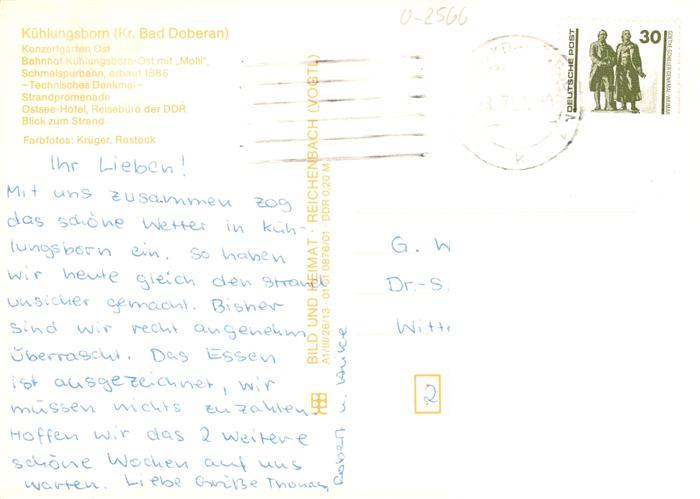 0-2566
Kühlungsborn (Kr. Bad Doberan)
Konzertgarten Ost
Bahnhof Kühlungsborn-Ost mit „Molli“,
Schmalspurbahn, erbaut 1886
–Technisches Denkmal–
Strandpromenade
Ostsee-Hotel, Reisebüro der DDR
Blick zum Strand
Farbfotos: Krüger, Rostock
DEUTSCHE POST
30
GOETHE-SCHILLER-DENKMAL · WEIMAR
Ihr Lieben!
Mit uns zusammen zog
das schöne Wetter in Küh-
lungsborn ein. So haben
wir heute gleich den Strand
unsicher gemacht. Bisher
sind wir recht angenehm
überrascht. Das Essen
ist ausgezeichnet, wir
müssen nichts zuzahlen.
Hoffen wir das 2 weitere
schöne Wochen auf uns
warten. Liebe Grüße Thomas,
Robert u.
BILD UND HEIMAT · REICHENBACH (VOGTL)
A1/III/26/13 · 01 01 0876/01 · DDR 0,20 M
G. W
Dr.-S.
Witt